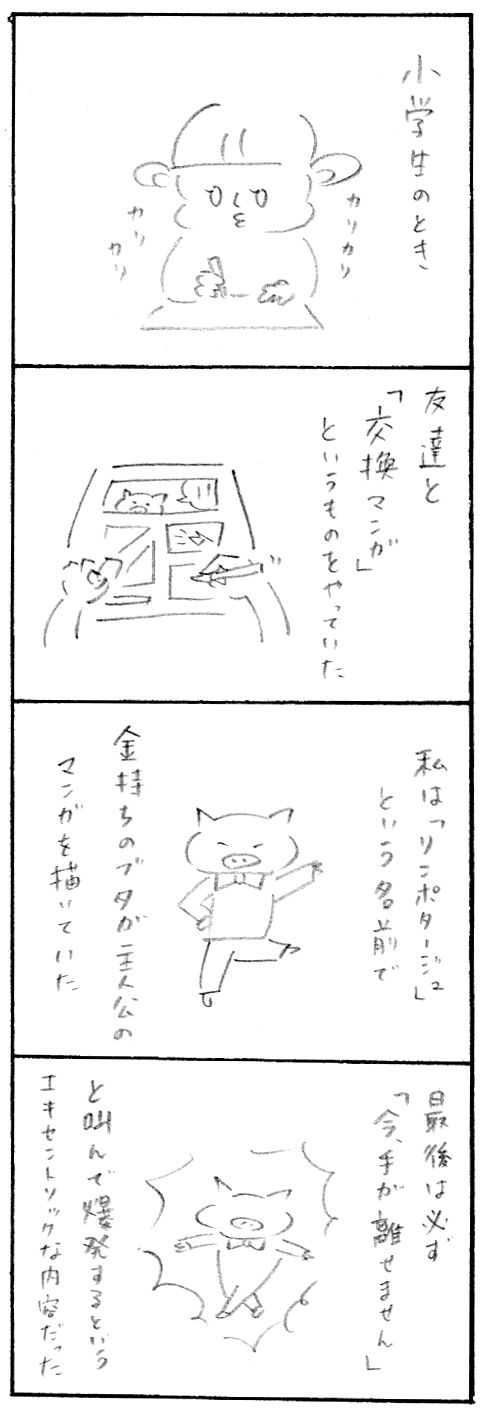 小学生のとき
カリカリ
カリ
カリ
友達と
「交換マンガ」
というものをやっていた
私は「リンポタージュ」
という名前で
金持ちのブタが主人公の
マンガを描いていた
最後は必ず
「今、手が離せません」
と叫んで爆発するという
エキセントリックな内容だった